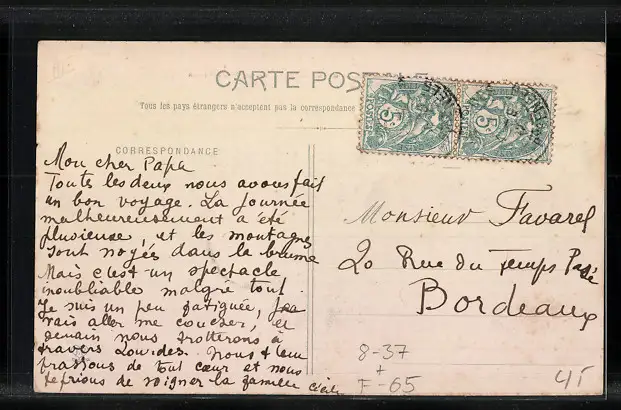 CARTE POSTALE
Tous les pays étrangers n'acceptent pas la correspondance
CORRESPONDANCE
Mon cher Papa
Toutes les deux nous avons fait
un bon voyage. La journée
malheureusement a été
plusieuse, et les montagnes
sont noyés dans la brume
Mais c'est un spectacle
inoubliable malgré tout.
Je suis un peu fatiguée,
vais aller me coucher, et
demain nous trotterons à
travers Lourdes. Nous t'em
brassons de tout cœur et nous
te prions de soigner la famille
Monsieur Favarel
20 Rue du Temps Passé
Bordeaux
8-37
+
F-65
45